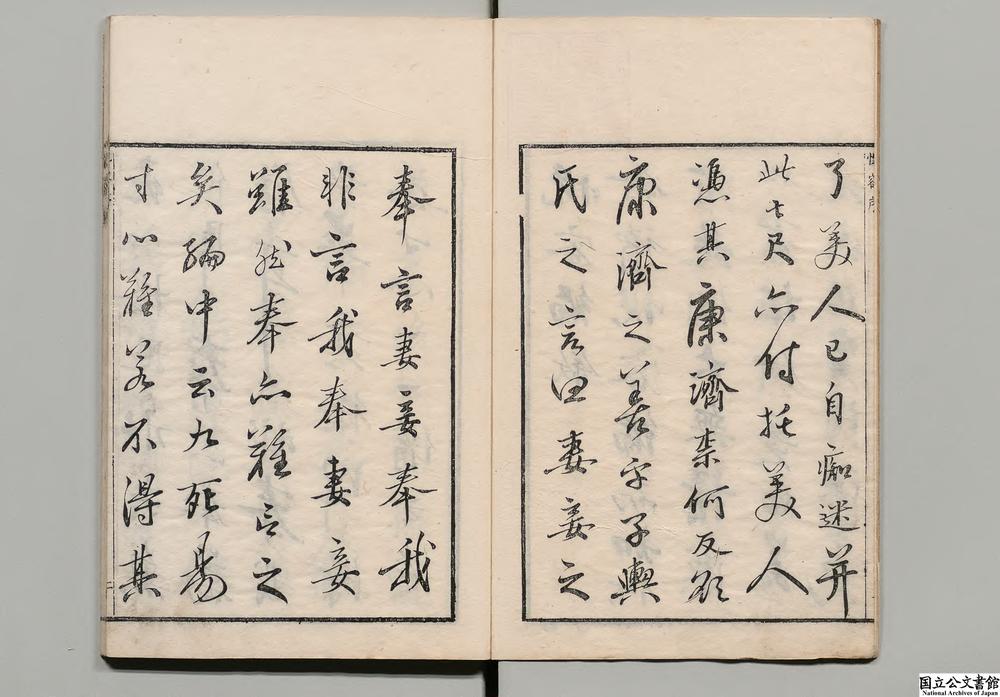 了美人已自痴迷并
此七尺亦付托美人
憑其康濟柰何反欲
康濟之善乎子輿
氏之言曰妻妾之
奉言妻妾奉我
非言我奉妻妾
雖然奉亦難言之
矣編中云九死易
寸心難若不得其
国立公文書館
National Archives of Japan